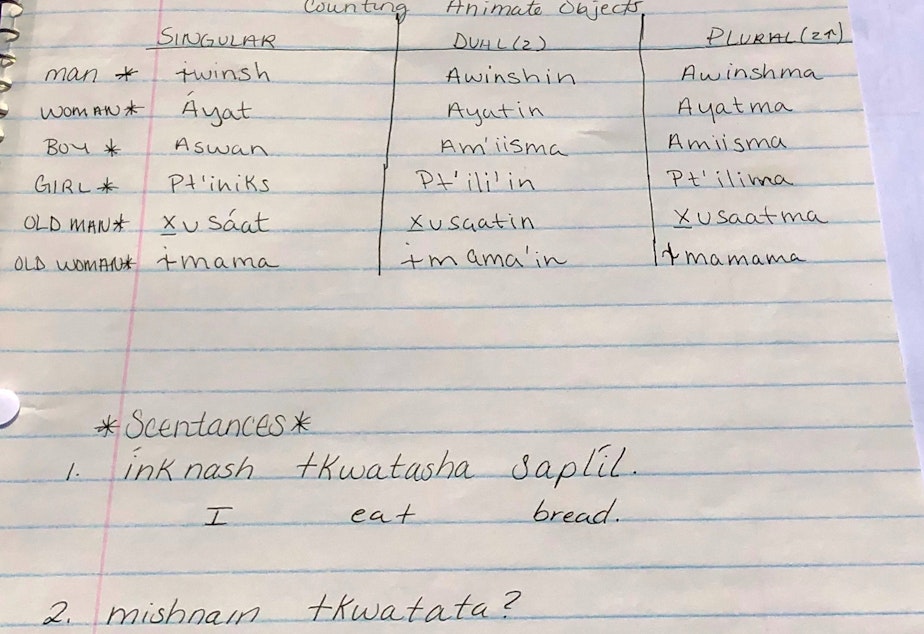 Counting Animate Objects
SINGULAR DUAL(2) PLURAL(2↑)
man * ɨwinsh Awinshin Awinshma
WOMAN* Áyat Ayatin Ayatma
BOY * Aswan Am'iisma Amiisma
GIRL* Pt'iniks Pt'ili'in Pt'ilima
OLD MAN* x̲usáat x̲usaatin x̲usaatma
OLD WOMAN* ɨmama ɨmama'in ɨmamama
*Scentances*
1. ínknash tkwatasha saplíl.
I eat bread.
2. mishnam tkwatata?